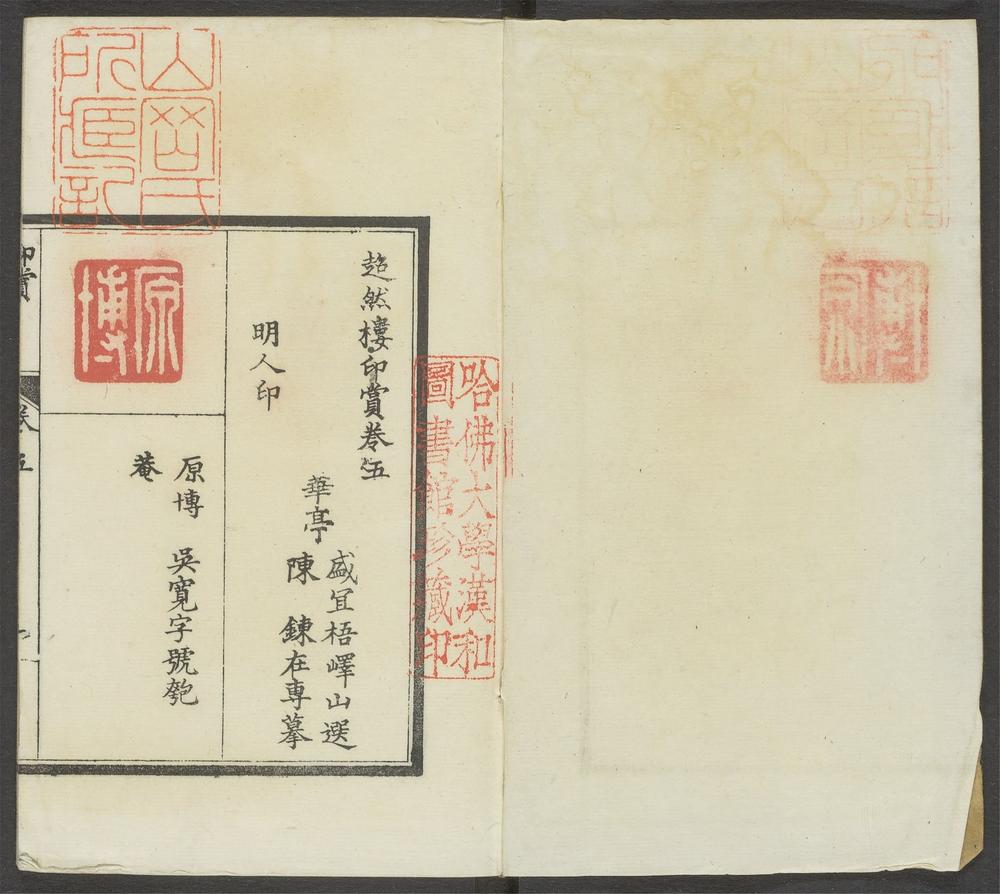 超然樓印賞卷五
華亭
盛宜梧嶧山選
陳 鍊在專摹
明人印
原博
原博 吳寬字號匏
菴
印賞
卷五
山晉氏
所臣記
哈佛大學漢和
圖書館珍藏印